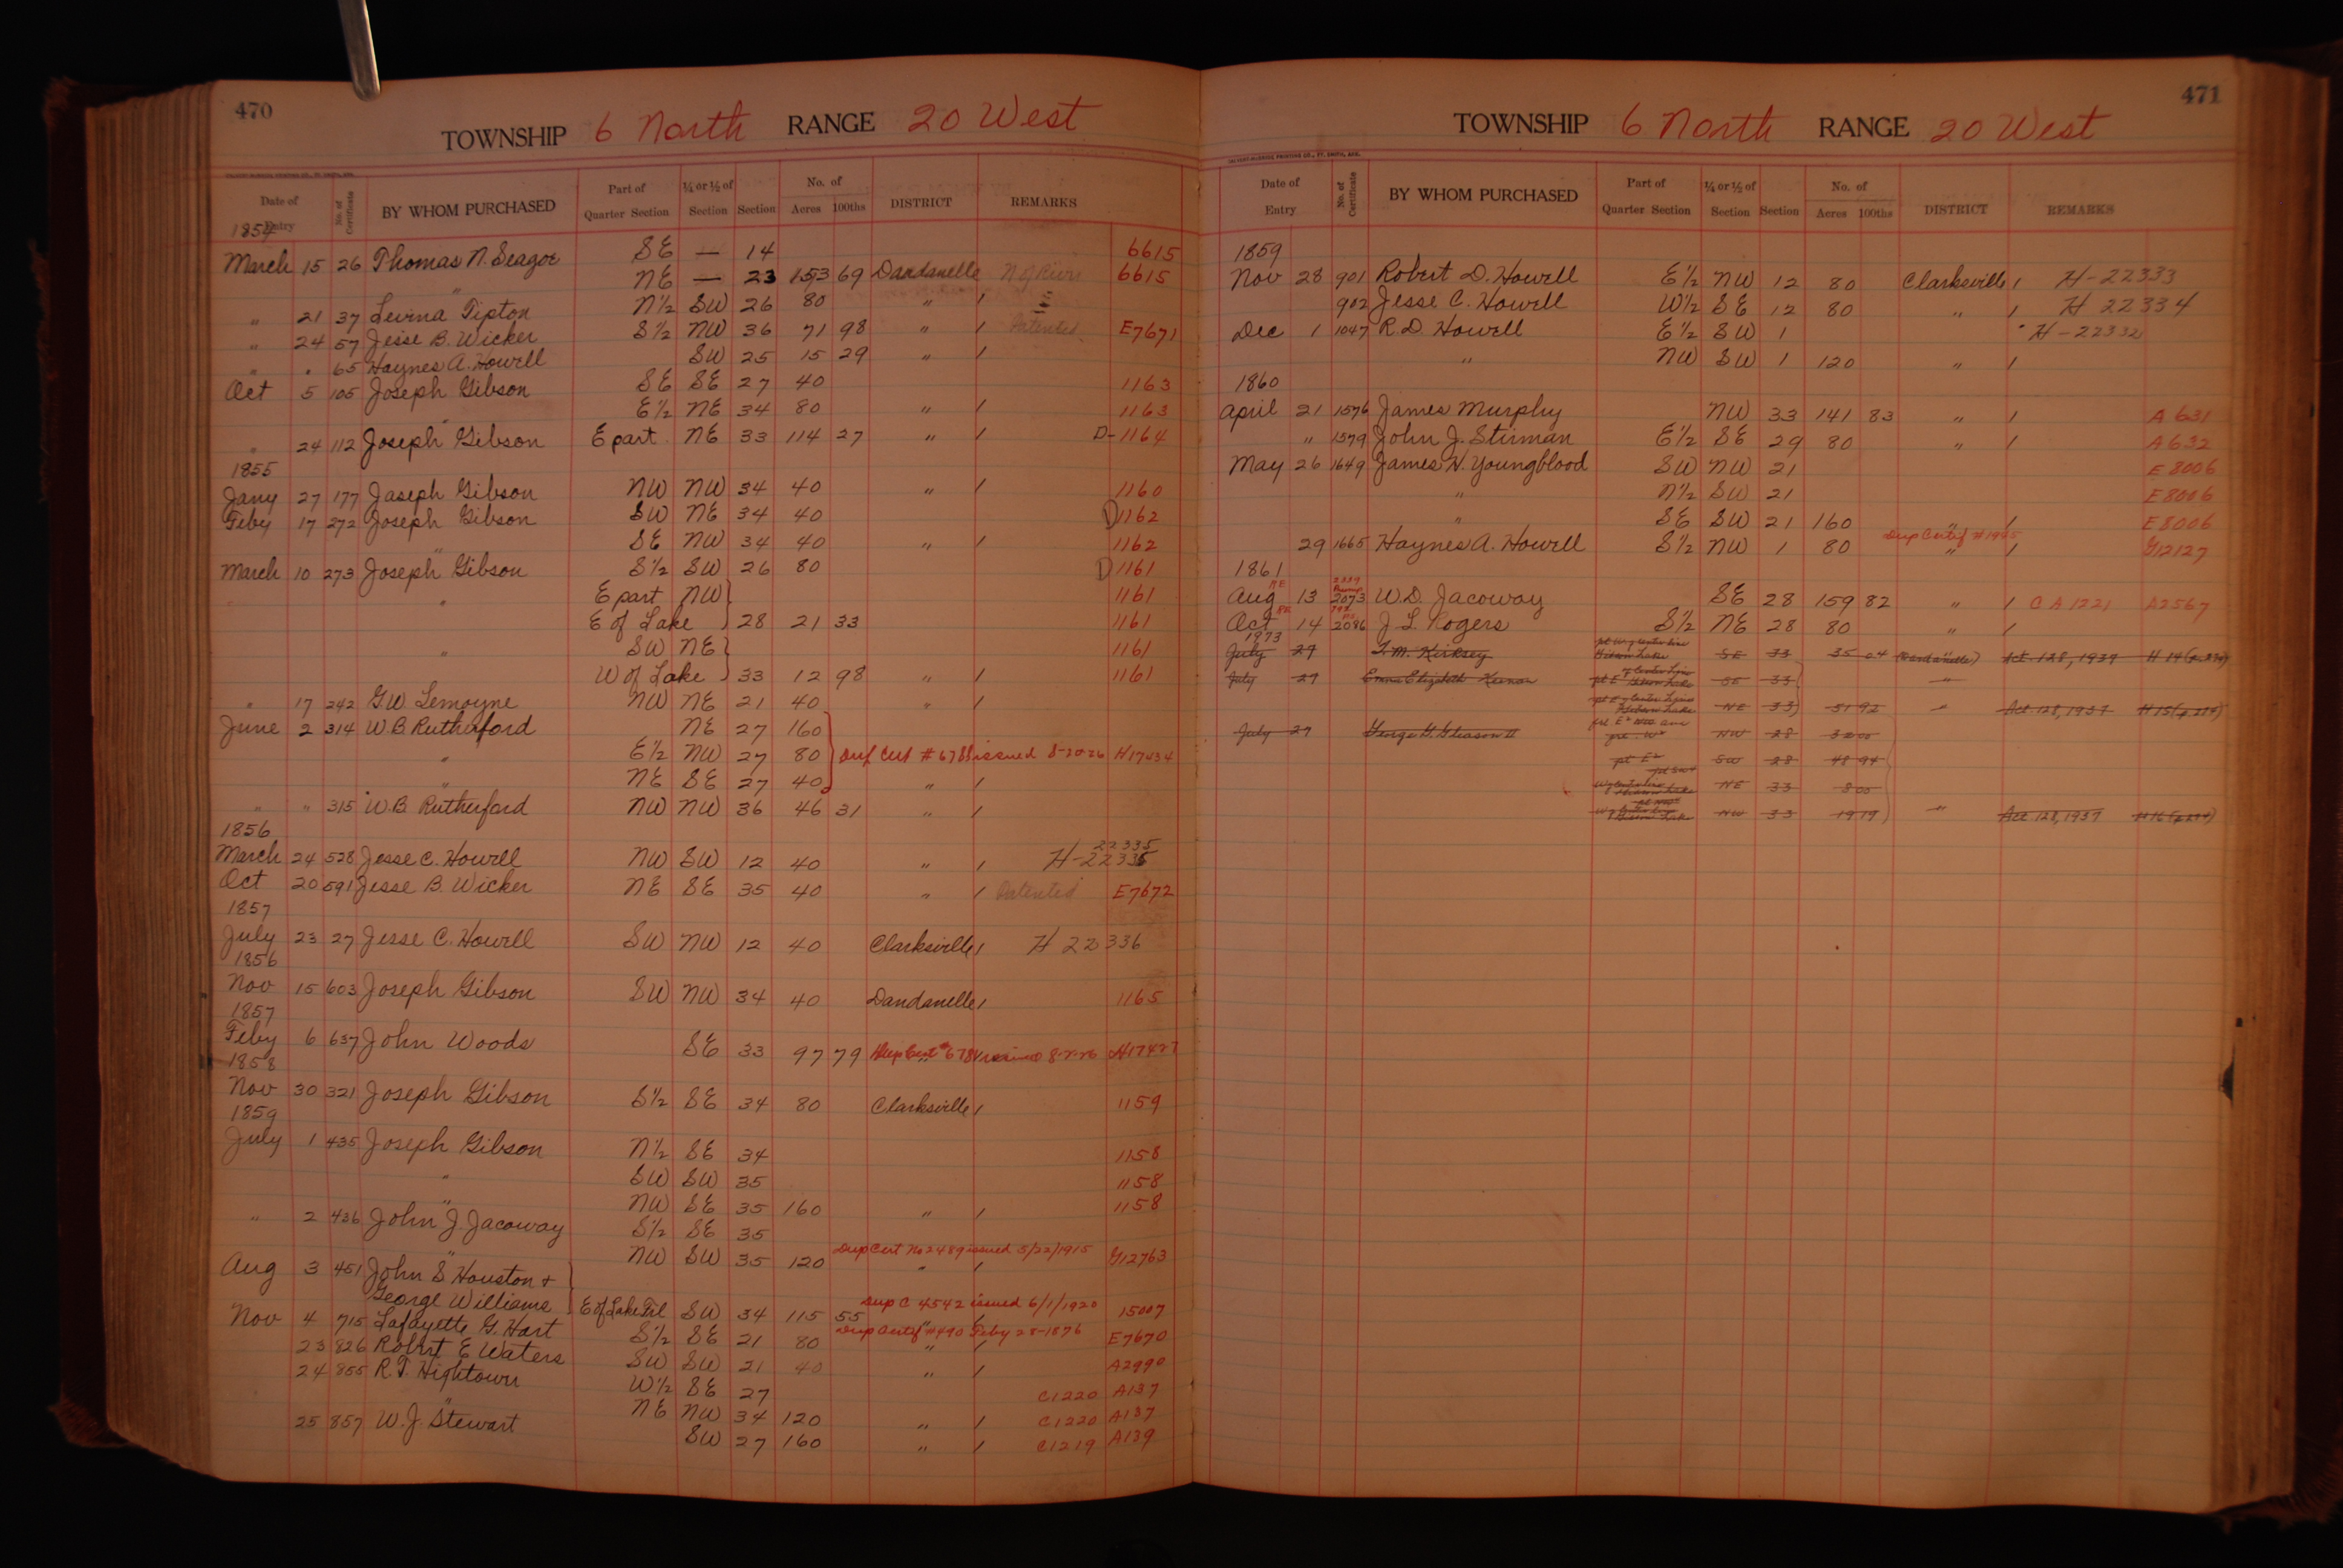 470
TOWNSHIP 6 North RANGE 20 West
Date of Entry No. of Certificate BY WHOM PURCHASED Part of Quarter Section ¼ or ½ of Section Section No. of Acres 100ths DISTRICT REMARKS
1854
SE — 14 6615
March 15 26 Thomas N. Seagoe NE — 23 153 69 Dardanelle N of River 6615
" N½ SW 26 80 " /
" 21 37 Levina Tipton S½ NW 36 71 98 " / Patented E7671
" 24 57 Jesse B. Wicker SW 25 15 29 " /
" " 65 Haynes A. Howell SE SE 27 40 1163
Oct 5 105 Joseph Gibson E½ NE 34 80 " / 1163
"
" 24 112 Joseph Gibson E part NE 33 114 27 " / D-1164
1855
Jany 27 177 Joseph Gibson NW NW 34 40 " / 1160
Feby 17 272 Joseph Gibson SW NE 34 40 D1162
" SE NW 34 40 " / 1162
March 10 273 Joseph Gibson S½ SW 26 80 D1161
" E part NW } 1161
E of Lake } 28 21 33 1161
" SW NE } 1161
W of Lake } 33 12 98 " / 1161
" 17 242 G.W. Lemoyne NW NE 21 40 " /
June 2 314 W.B. Rutherford NE 27 160
" E½ NW 27 80 Dup Cert # 6788 issued 8-20-26 H17434
" NE SE 27 40 " /
" " 315 W.B. Rutherford NW NW 36 46 31 " /
1856
22335
March 24 528 Jesse C. Howell NW SW 12 40 " / H-22335
Oct 20 591 Jesse B. Wicker NE SE 35 40 " / Patented E7672
1857
July 23 27 Jesse C. Howell SW NW 12 40 Clarksville / H 22336
1856
Nov 15 603 Joseph Gibson SW NW 34 40 Dardanelle / 1165
1857
Feby 6 637 John Woods SE 33 97 79 Dup Cert # issued H17427
1858
Nov 30 321 Joseph Gibson S½ SE 34 80 Clarksville / 1159
1859
July 1 435 Joseph Gibson N½ SE 34 1158
" SW SW 35 1158
" NW SE 35 160 " / 1158
" 2 436 John J. Jacoway S½ SE 35
" NW SW 35 120 Dup Cert No 2489 issued 5/22/1915 " / G12763
Aug 3 451 John S. Houston +
George Williams } E of Lake Frl SW 34 115 55 Dup C 4542 issued 6/1/1920 15007
Nov 4 715 Lafayette G. Hart S½ SE 21 80 Dup Certif # 490 Feby 28-1876 " / E7670
23 826 Robert E Waters SW SW 21 40 " / A2990
24 855 R.T. Hightower W½ SE 27 C1220 A137
" NE NW 34 120 " / C1220 A137
25 857 W.J. Stewart SW 27 160 " / C1219 A139
471
TOWNSHIP 6 North RANGE 20 West
Date of Entry No. of Certificate BY WHOM PURCHASED Part of Quarter Section ¼ or ½ of Section Section No. of Acres 100ths DISTRICT REMARKS
1859
Nov 28 901 Robert D. Howell E½ NW 12 80 Clarksville / H-22333
902 Jesse C. Howell W½ SE 12 80 " / H 22334
Dec 1 1047 R.D. Howell E½ SW 1 H-22332
" NW SW 1 120 " /
1860
April 21 1576 James Murphy NW 33 141 83 " / A631
" 1579 John J. Stirman E½ SE 29 80 " / A632
May 26 1649 James N. Youngblood SW NW 21 E8006
" N½ SW 21 E8006
" SE SW 21 160 " / E8006
29 1665 Haynes A. Howell S½ NW 1 80 Dup Certif " / G12127
1861
Aug 13 2073 W.D. Jacoway SE 28 159 82 " / C A 1221 A2567
Oct 14 2086 J L Rogers S½ NE 28 80 " /
1973
July 27 T.M. Kirksey SE 33 35 04 (Dardanelle) Act 128, 1937
July 27 Emma Elizabeth Keenan SE 33 "
NE 33 51 92 " Act 128, 1937
July 27 George G. Gleason II NW 28
SW 28 48 94
NE 33 8 00
NW 33 19 19 " Act 128, 1937